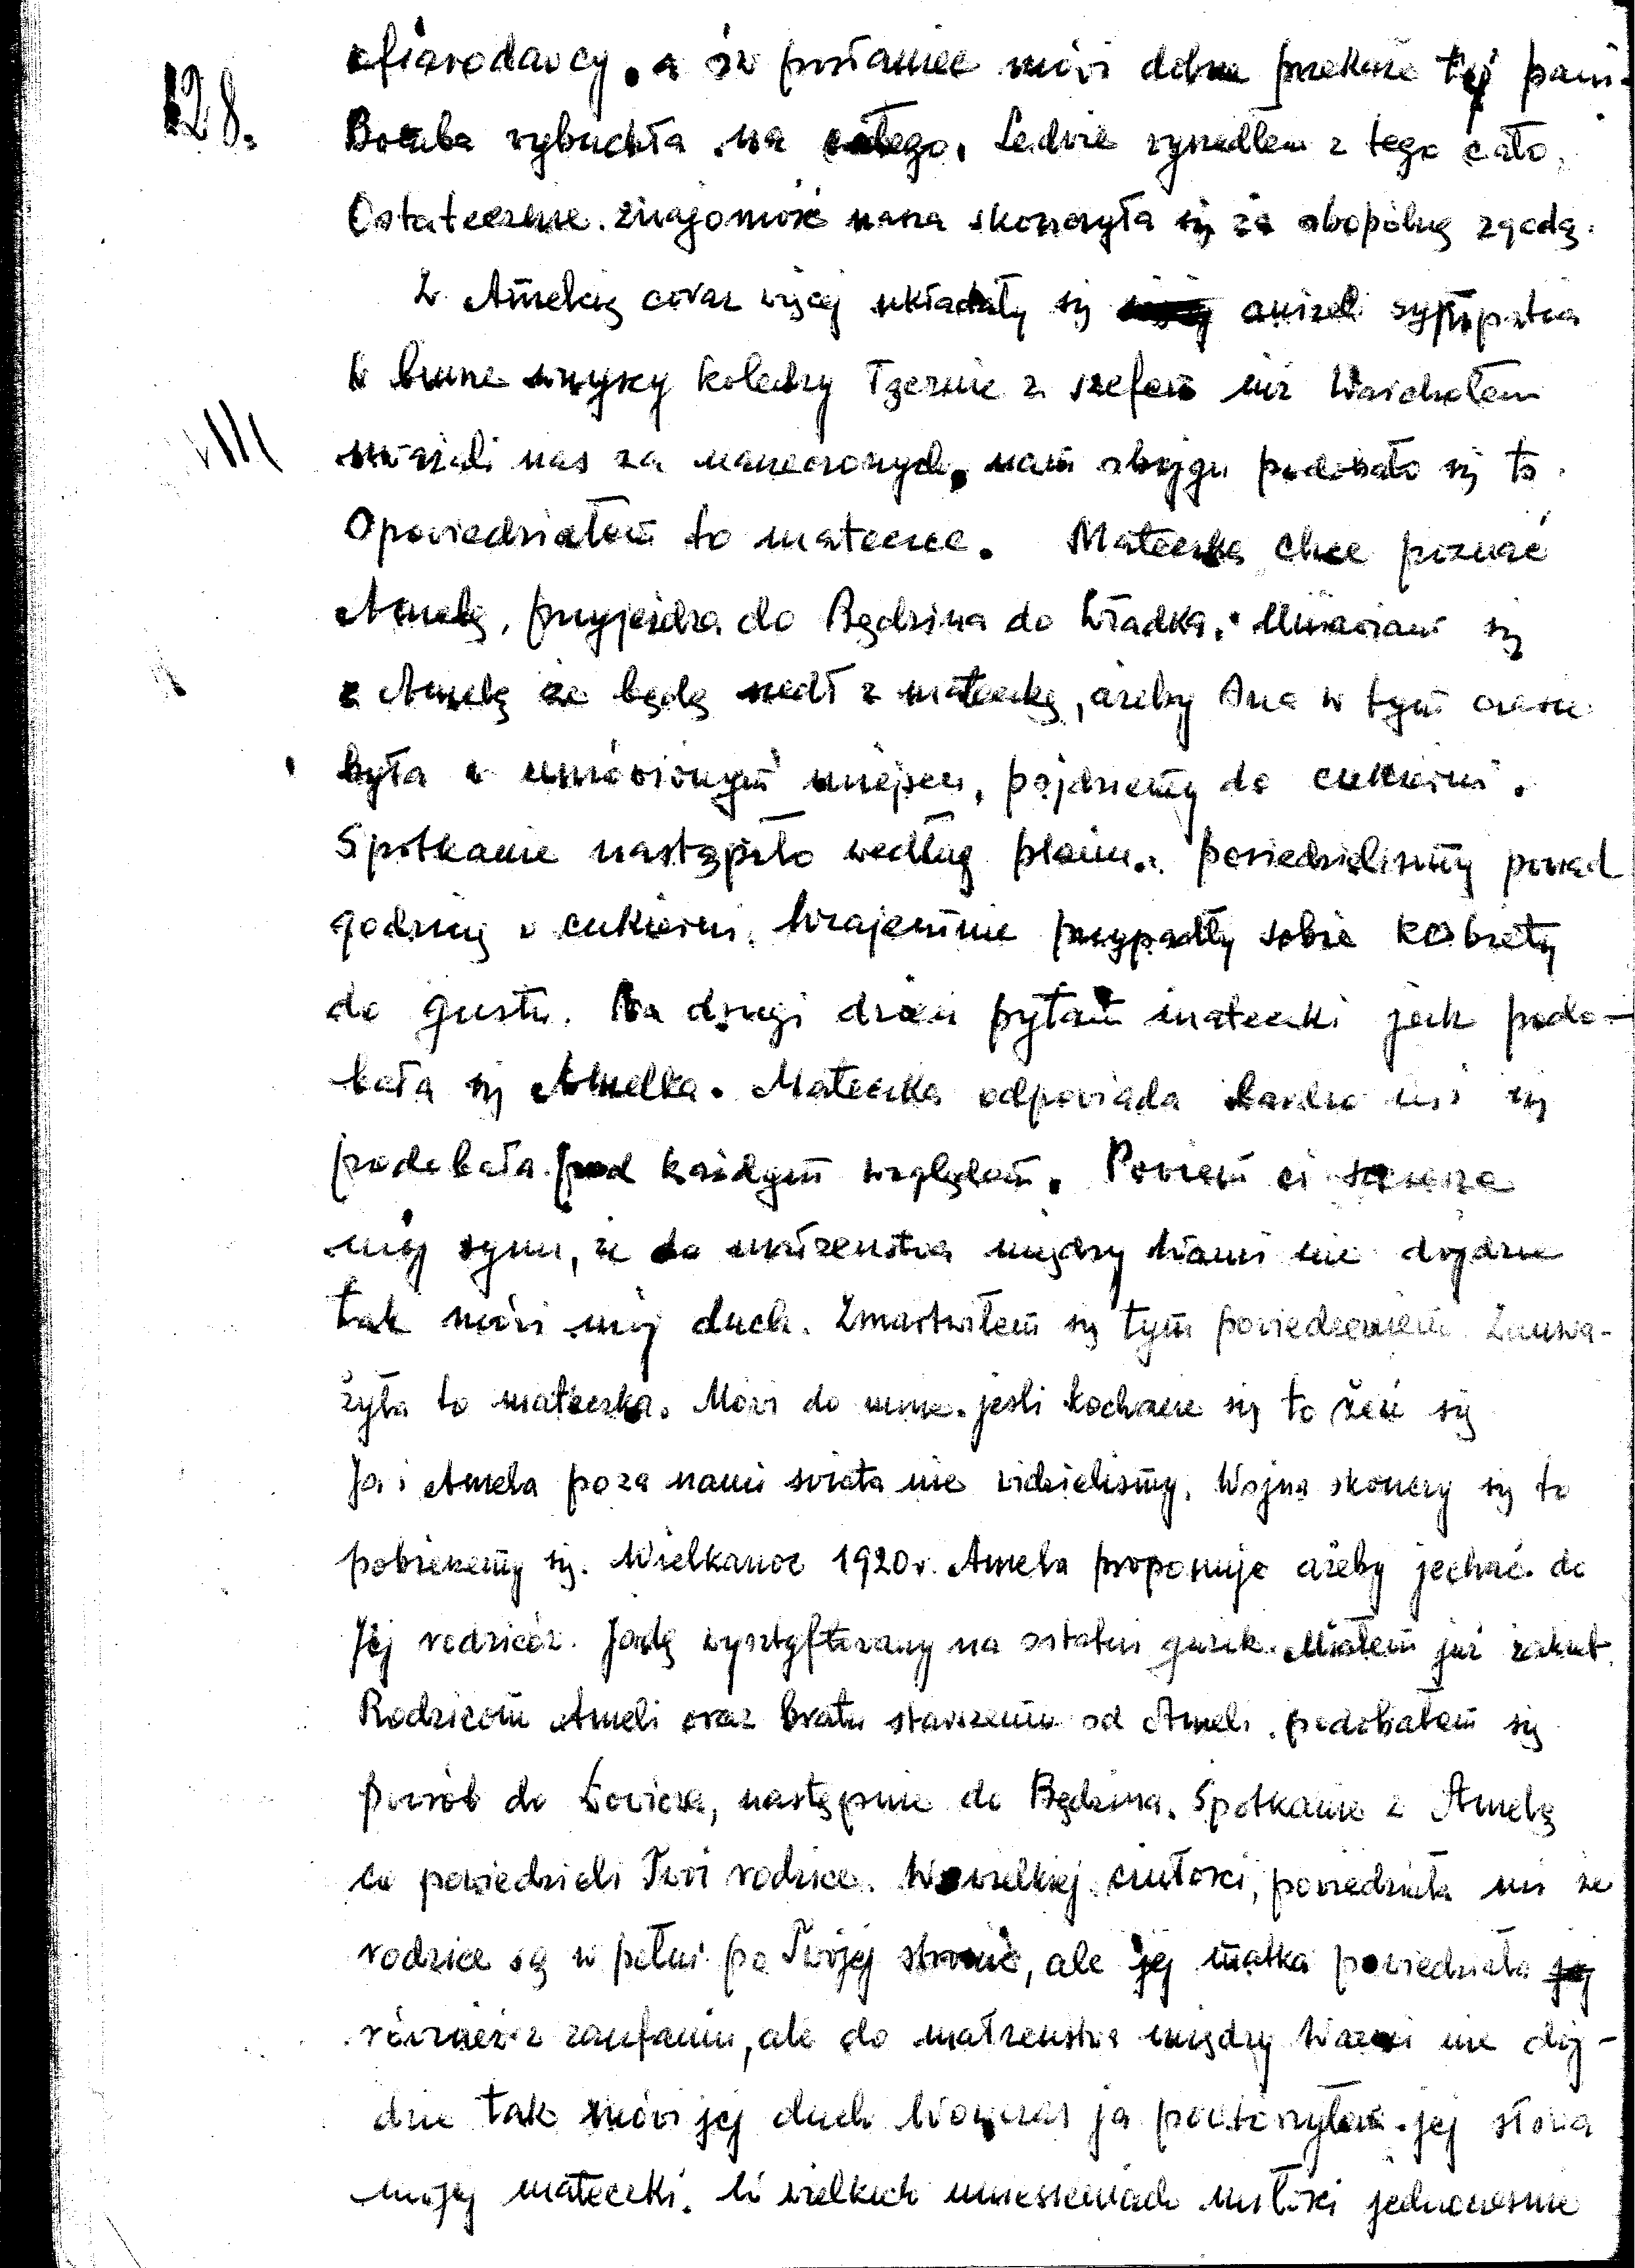 128.
ofiarodavcy, a ów posłaniec mówi dobrze przekaże tej pani.
Bomba vybuchła na całego. Ledvie vyszedłem z tego cało.
Ostatecznie znajomość nasza skończyła się za obopólną zgodą.
Z Amelcią coraz więcej układały się aniżeli sympatia
W biurze wszyscy koledzy łącznie z szefem inż Wąsichołem
uważali nas za narzeczonych, nam obojgu podobało się to.
VIII
Opoviedziałem to mateczce. Mateczka chce poznać
Amelę, przyjeżdża do Będzina do Władka. Umaviam się
z Amelą że będę szedł z mateczką, ażeby Ona w tym czasie
była v umóvionym miejscu, pójdziemy do cukierni.
Spotkanie nastąpiło według planu. posiedzieliśmy ponad
godzinę v cukierni. Wzajemnie przypadły sobie kobiety
do gustu. Na drugi dzień pytam mateczki jak podo-
bała się Amelka. Mateczka odpoviada bardzo mi się
podobała pod każdym względem. Poviem ci szczerze
mój synu, że do małżeństva między Wami nie dojdzie
tak móvi mój duch. Zmartviłem się tym poviedzeniem. Zauva-
żyła to mateczka. Móvi do mnie. jeśli kochacie się to żeń się
Ja i Amela poza nami śviata nie vidzieliśmy. Wojna skończy się to
pobierzemy się. Wielkanoc 1920 r. Amela proponuje ażeby jechać do
Jej rodziców. Jadę vysztyftovany na ostatni guzik. Miałem już żakiet.
Rodzicom Ameli oraz bratu starszemu od Ameli podobałem się
povrót do Łovicza, następnie do Będzina. Spotkanie z Amelą
co poviedzieli Tvoi rodzice. W vielkiej czułości, poviedziała mi że
rodzice są w pełni po Tvojej stronie, ale jej matka poviedziała jej
róvnież v zaufaniu, ale do małżeństva między Wami nie doj-
dzie tak móvi jej duch Wówczas ja povtórzyłem jej słova
mojej mateczki. W vielkich uniesieniach miłości jednocześnie